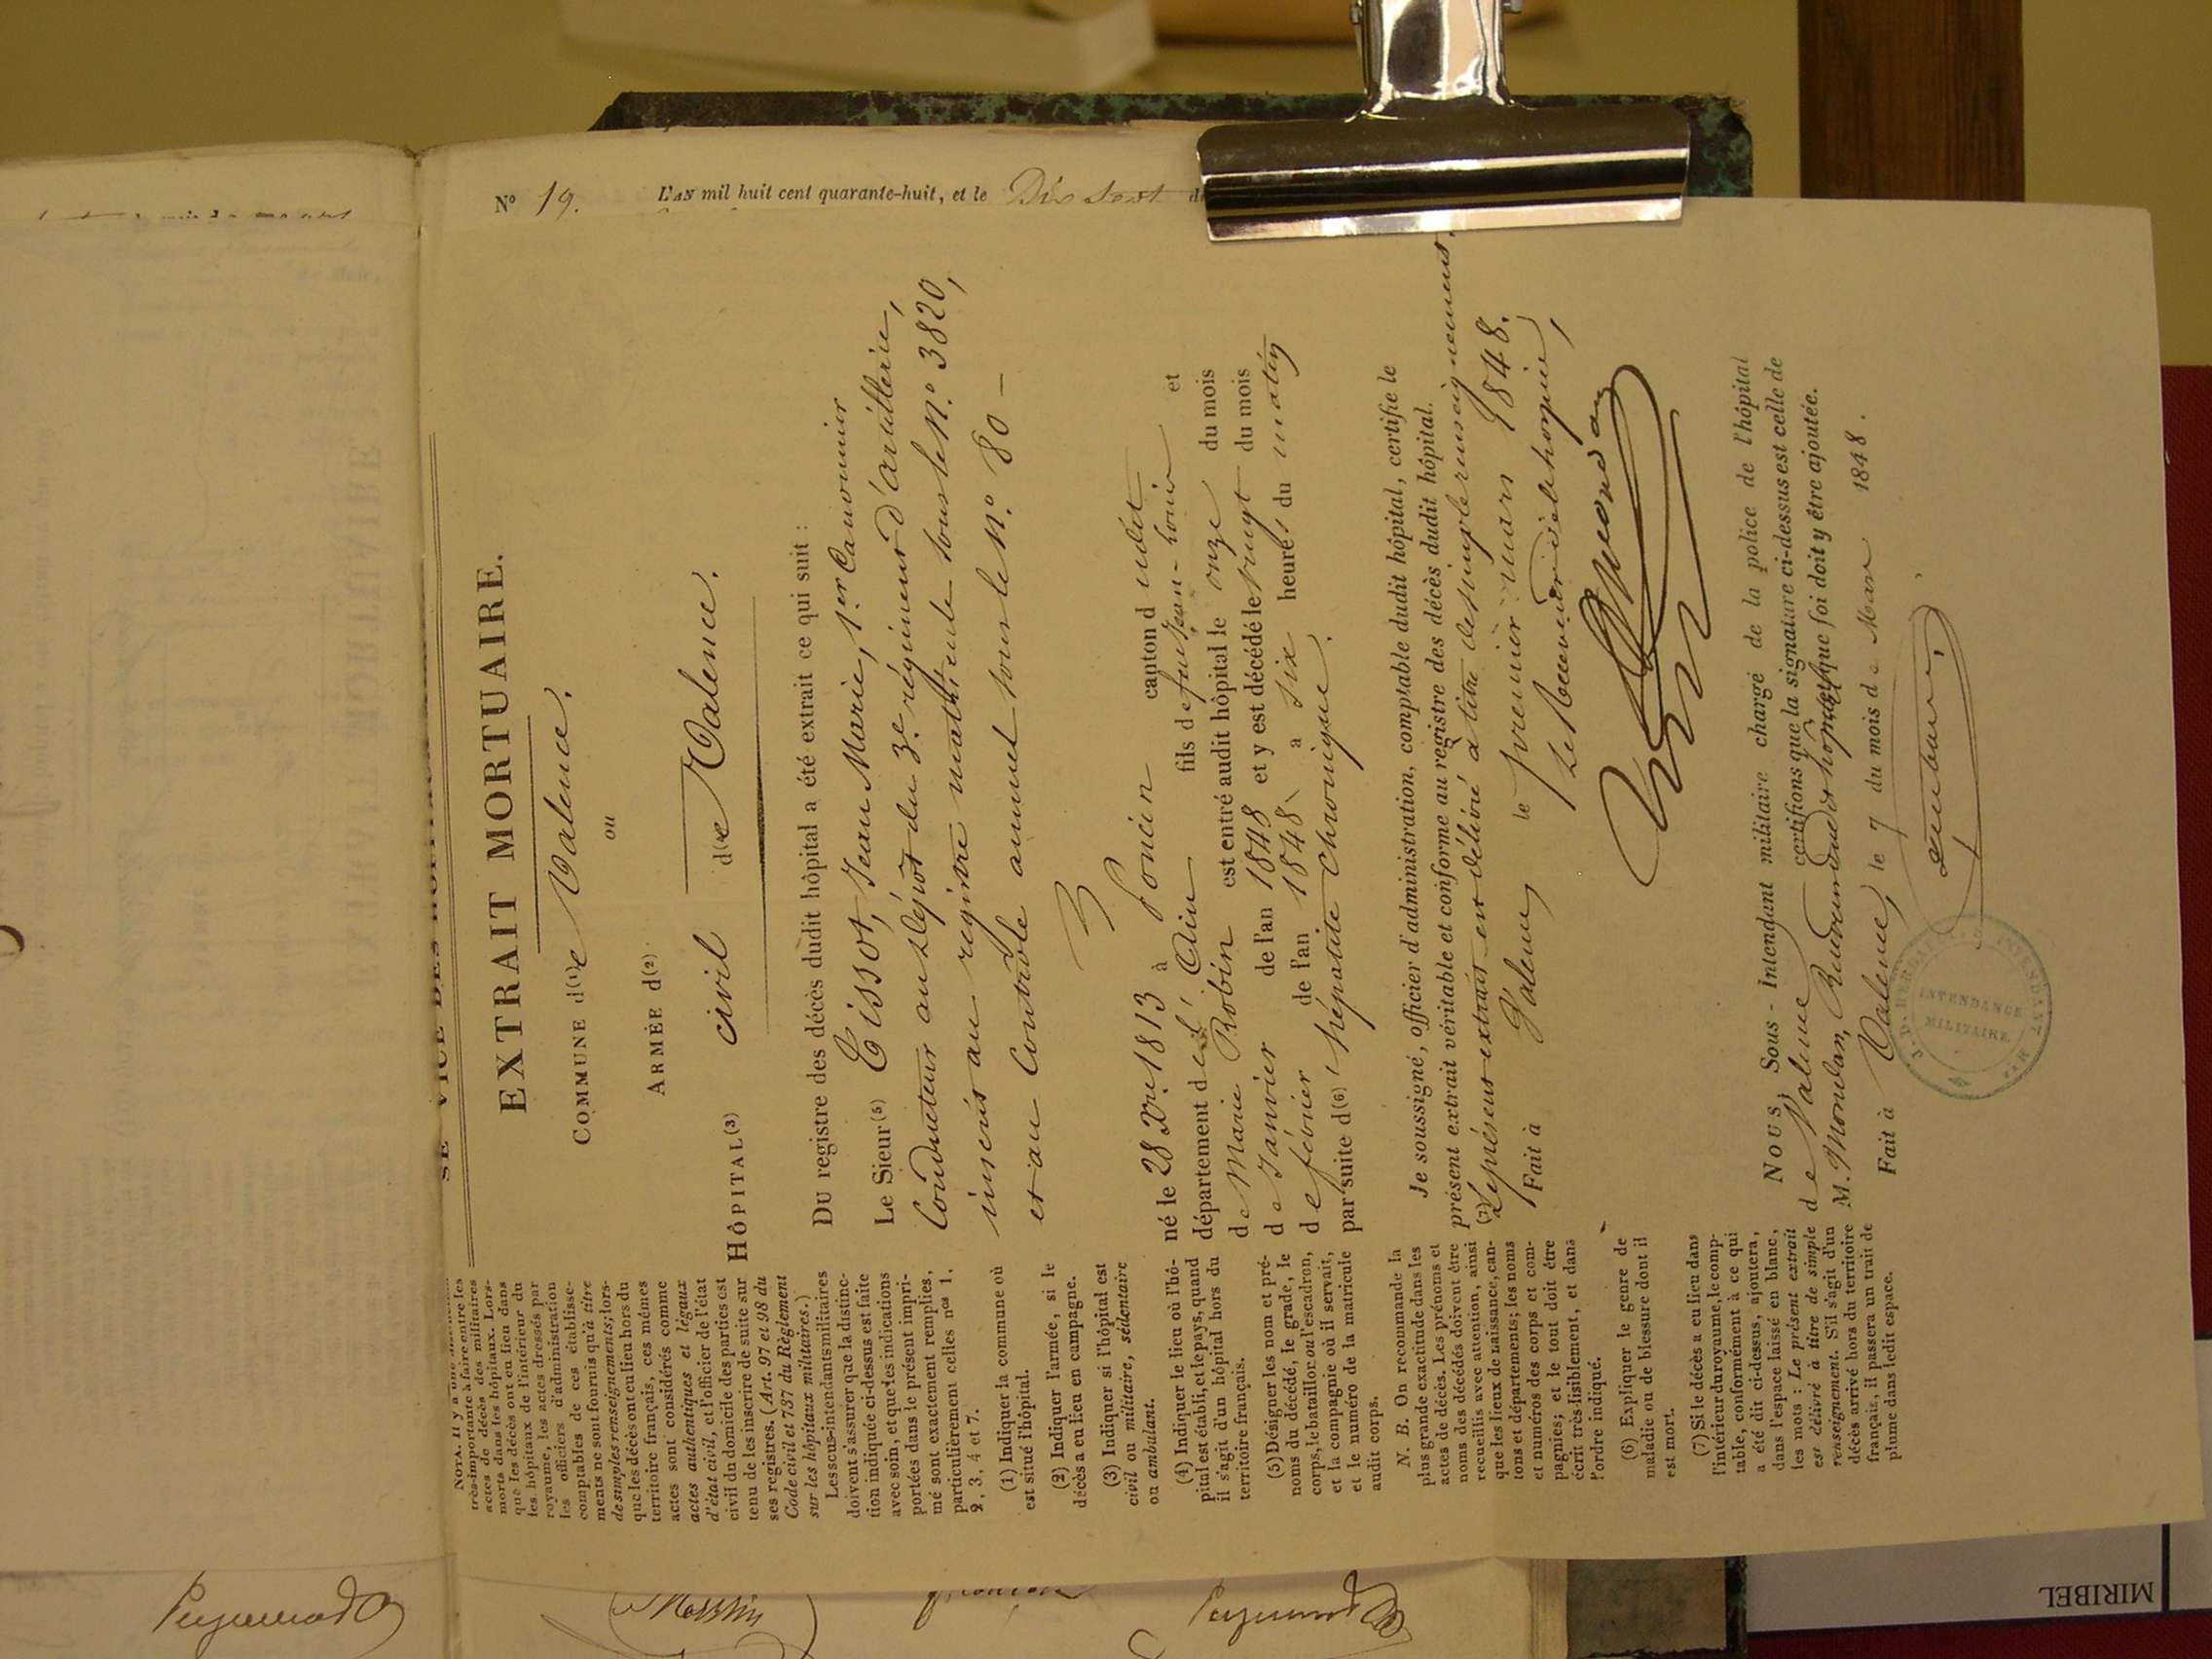 N° 19.
L'AN mil huit cent quarante-huit, et le Dix Sept
EXTRAIT MORTUAIRE.
COMMUNE d(1)e Valence.
ou
ARMÉE d(2)
HÔPITAL(3) civil d(4)e Valence.
DU registre des décès dudit hôpital a été extrait ce qui suit :
Le Sieur(5) Tissot, Jean Marie, 1er Canonnier
Conducteur au Dépôt du 3e régiment d'artillerie,
inscrit au registre matricule sous le N.° 3820,
et au Contrôle annuel sous le N.° 80 —
né le 28 Xbre 1813 à Poncin canton d udit
département de l'Ain fils de feu Jean-Louis et
de Marie Robin est entré audit hôpital le onze du mois
de Janvier de l'an 1848 et y est décédé le vingt du mois
de février de l'an 1848 à six heures du matin
par suite d(6) hépatite Chronique.
Je soussigné, officier d'administration, comptable dudit hôpital, certifie le
présent extrait véritable et conforme au registre des décès dudit hôpital.
(7) Le présent extrait est délivré à titre de simple renseignement.
Fait à Valence, le premier mars 1848.
Le Receveur de l'hospice,
NOUS, Sous-Intendant militaire chargé de la police de l'hôpital
de Valence certifions que la signature ci-dessus est celle de
M. Mondan, Receveur dudit hôpital, et que foi doit y être ajoutée.
Fait à Valence, le 7 du mois de Mars 1848.
INTENDANCE
MILITAIRE
très-importante à faire entre les
actes de décès des militaires
morts dans les hôpitaux. Lors-
que les décès ont eu lieu dans
les hôpitaux de l'intérieur du
royaume, les actes dressés par
les officiers d'administration
comptables de ces établisse-
ments ne sont fournis qu'à titre
de simples renseignements; lors-
que les décès ont eu lieu hors du
territoire français, ces mêmes
actes sont considérés comme
actes authentiques et légaux
d'état civil, et l'officier de l'état
civil du domicile des parties est
tenu de les inscrire de suite sur
ses registres. (Art. 97 et 98 du
Code civil et 737 du Règlement
sur les hôpitaux militaires.)
Les sous-intendants militaires
doivent s'assurer que la distinc-
tion indiquée ci-dessus est faite
avec soin, et que les indications
portées dans le présent impri-
mé sont exactement remplies,
particulièrement celles nos 1,
2, 3, 4 et 7.
(1) Indiquer la commune où
est situé l'hôpital.
(2) Indiquer l'armée, si le
décès a eu lieu en campagne.
(3) Indiquer si l'hôpital est
civil ou militaire, sédentaire
ou ambulant.
(4) Indiquer le lieu où l'hô-
pital est établi, et le pays, quand
il s'agit d'un hôpital hors du
territoire français.
(5) Désigner les nom et pré-
noms du décédé, le grade, le
corps, le bataillon ou l'escadron,
et la compagnie où il servait,
et le numéro de la matricule
audit corps.
N. B. On recommande la
plus grande exactitude dans les
actes de décès. Les prénoms et
noms des décédés doivent être
recueillis avec attention, ainsi
que les lieux de naissance, can-
tons et départements; les noms
et numéros des corps et com-
pagnies; et le tout doit être
écrit très-lisiblement, et dans
l'ordre indiqué.
(6) Expliquer le genre de
maladie ou de blessure dont il
est mort.
(7) Si le décès a eu lieu dans
l'intérieur du royaume, le comp-
table, conformément à ce qui
a été dit ci-dessus, ajoutera,
dans l'espace laissé en blanc,
les mots : Le présent extrait
est délivré à titre de simple
renseignement. S'il s'agit d'un
décès arrivé hors du territoire
français, il passera un trait de
plume dans ledit espace.
MIRIBEL